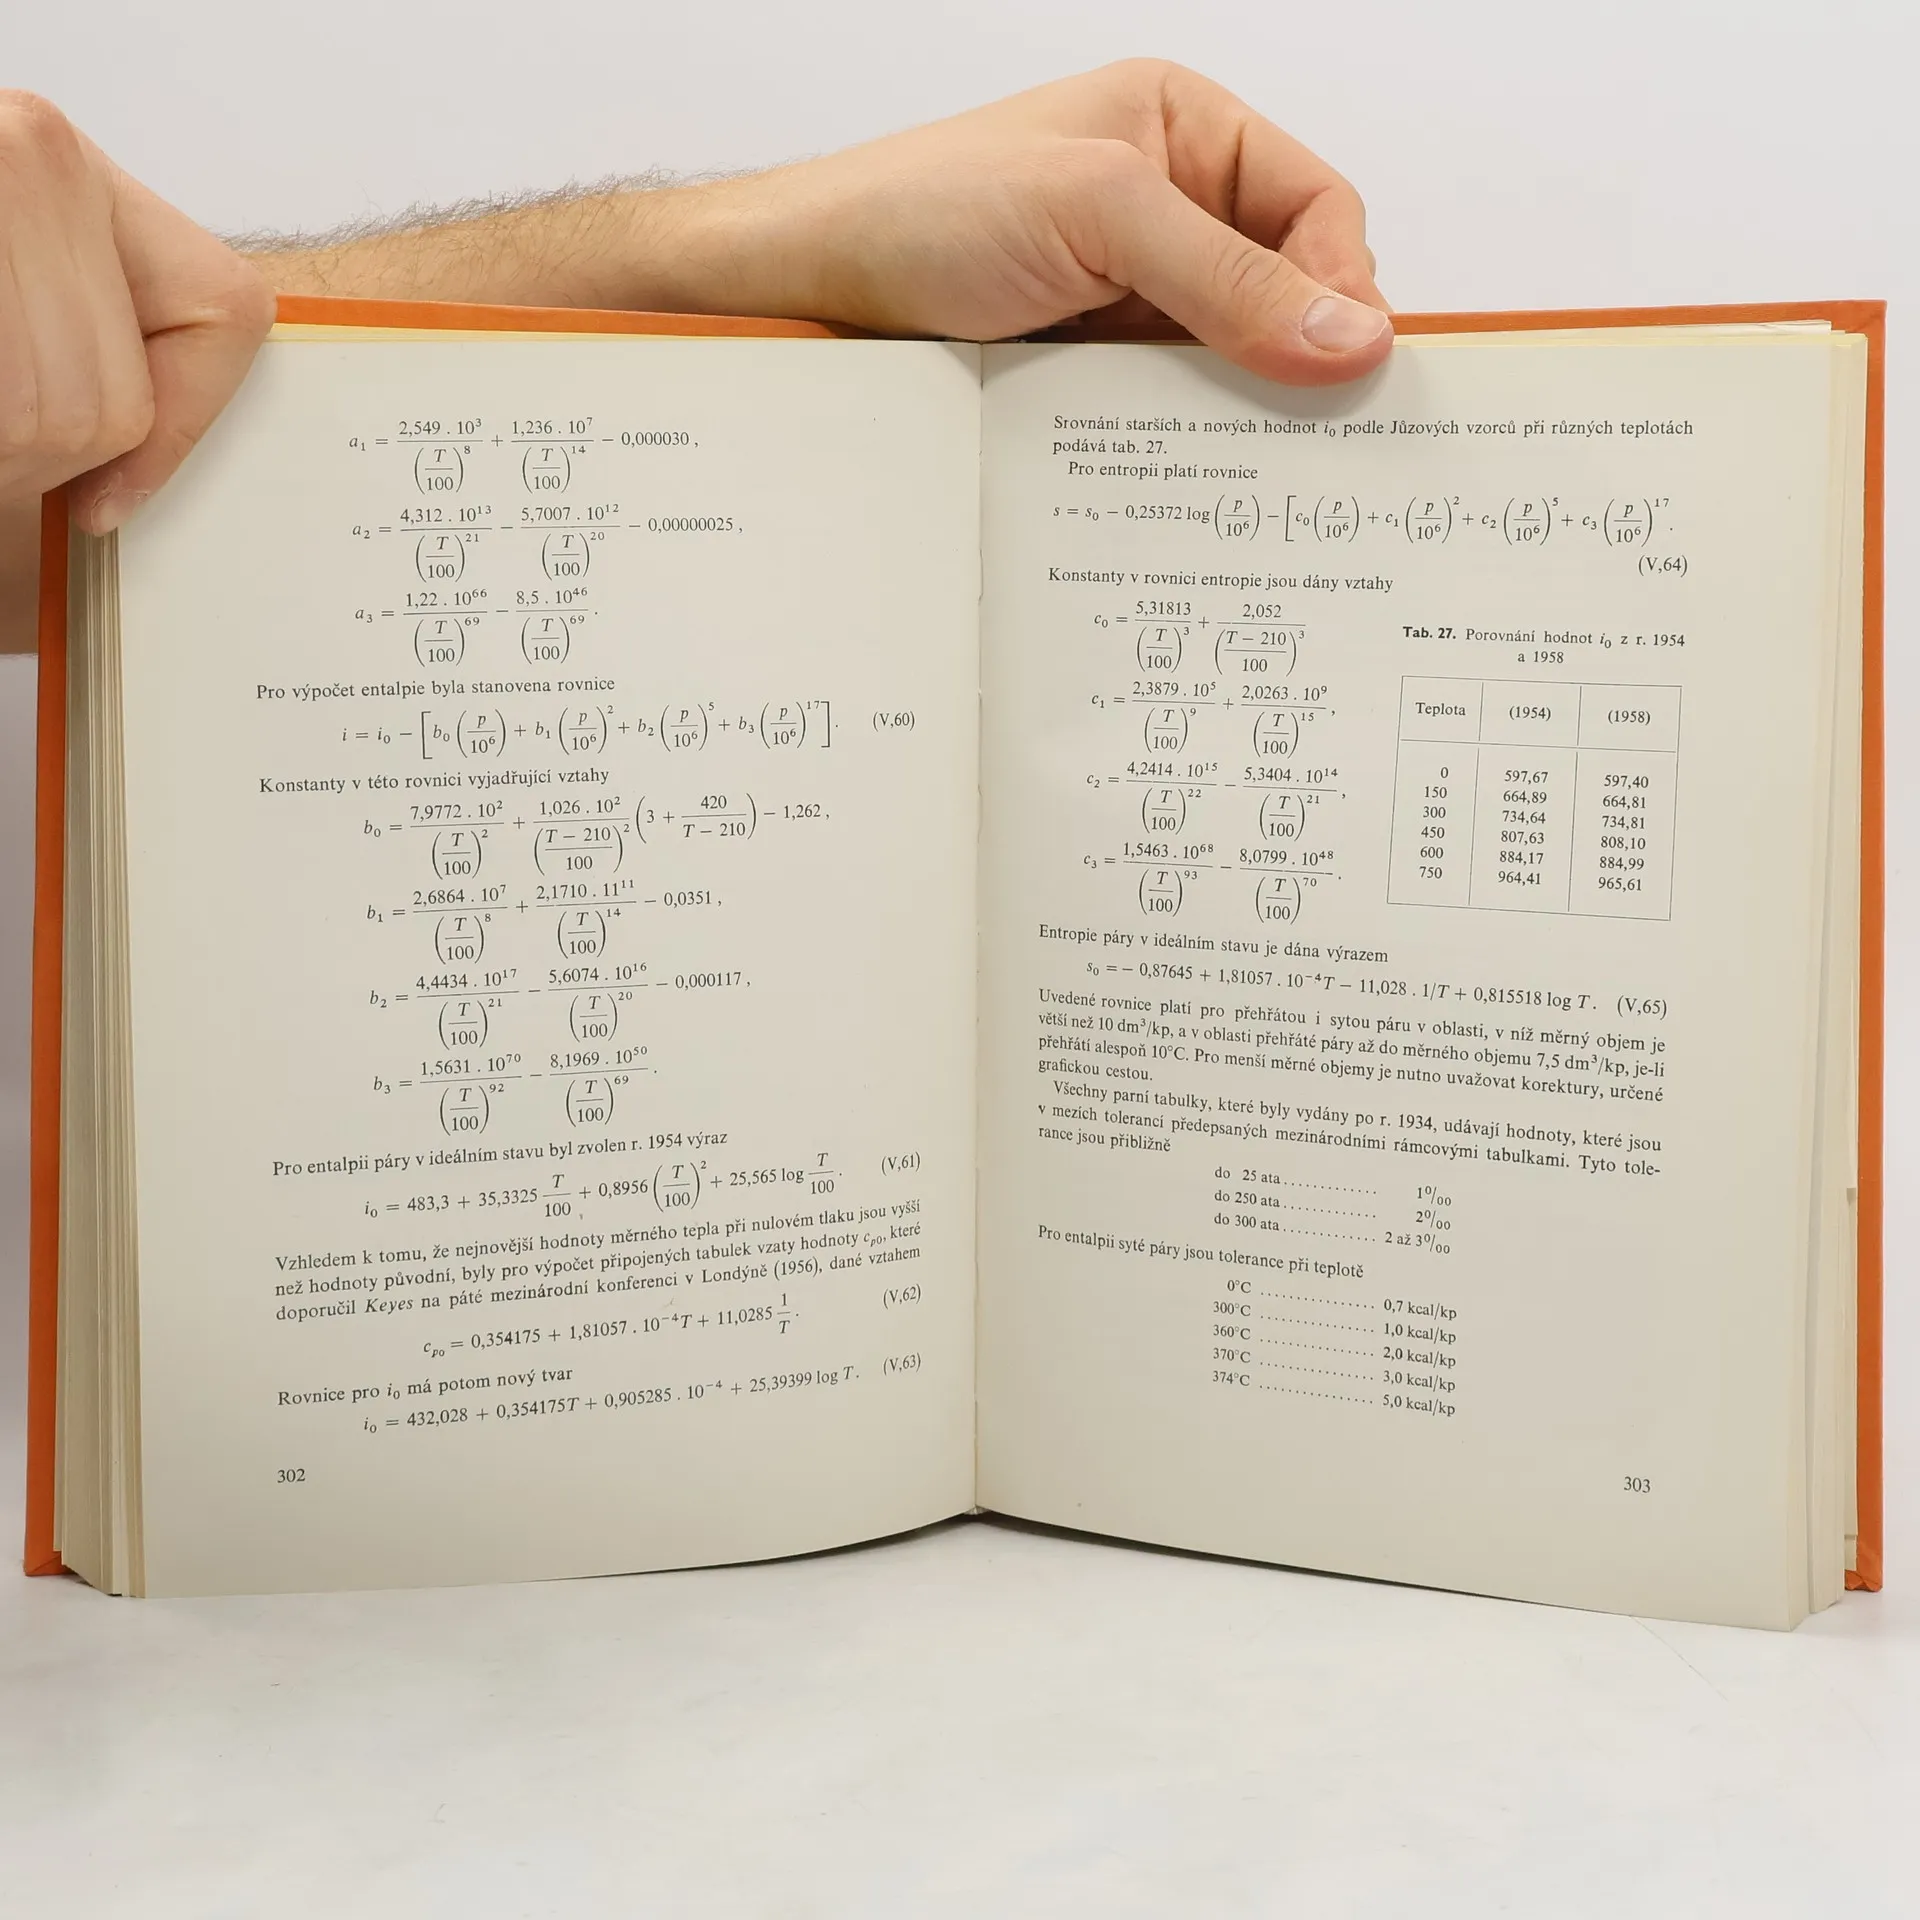 a₁ = 2,549 . 10³ / (T/100)⁸ + 1,236 . 10⁷ / (T/100)¹⁴ − 0,000030 ,
a₂ = 4,312 . 10¹³ / (T/100)²¹ − 5,7007 . 10¹² / (T/100)²⁰ − 0,00000025 ,
a₃ = 1,22 . 10⁶⁶ / (T/100)⁶⁹ − 8,5 . 10⁴⁶ / (T/100)⁶⁹ .
Pro výpočet entalpie byla stanovena rovnice
i = i₀ − [b₀ (p/10⁶) + b₁ (p/10⁶)² + b₂ (p/10⁶)⁵ + b₃ (p/10⁶)¹⁷] . (V,60)
Konstanty v této rovnici vyjadřující vztahy
b₀ = 7,9772 . 10² / (T/100)² + 1,026 . 10² / ((T − 210)/100)² (3 + 420/(T − 210)) − 1,262 ,
b₁ = 2,6864 . 10⁷ / (T/100)⁸ + 2,1710 . 11¹¹ / (T/100)¹⁴ − 0,0351 ,
b₂ = 4,4434 . 10¹⁷ / (T/100)²¹ − 5,6074 . 10¹⁶ / (T/100)²⁰ − 0,000117 ,
b₃ = 1,5631 . 10⁷⁰ / (T/100)⁹² − 8,1969 . 10⁵⁰ / (T/100)⁶⁹ .
Pro entalpii páry v ideálním stavu byl zvolen r. 1954 výraz
i₀ = 483,3 + 35,3325 T/100 + 0,8956 (T/100)² + 25,565 log T/100 . (V,61)
Vzhledem k tomu, že nejnovější hodnoty měrného tepla při nulovém tlaku jsou vyšší
než hodnoty původní, byly pro výpočet připojených tabulek vzaty hodnoty cₚ₀, které
doporučil Keyes na páté mezinárodní konferenci v Londýně (1956), dané vztahem
cₚ₀ = 0,354175 + 1,81057 . 10⁻⁴T + 11,0285 1/T . (V,62)
Rovnice pro i₀ má potom nový tvar
i₀ = 432,028 + 0,354175T + 0,905285 . 10⁻⁴ + 25,39399 log T . (V,63)
302
Srovnání starších a nových hodnot i₀ podle Jůzových vzorců při různých teplotách
podává tab. 27.
Pro entropii platí rovnice
s = s₀ − 0,25372 log (p/10⁶) − [c₀ (p/10⁶) + c₁ (p/10⁶)² + c₂ (p/10⁶)⁵ + c₃ (p/10⁶)¹⁷ .
(V,64)
Konstanty v rovnici entropie jsou dány vztahy
c₀ = 5,31813 / (T/100)³ + 2,052 / ((T − 210)/100)³
c₁ = 2,3879 . 10⁵ / (T/100)⁹ + 2,0263 . 10⁹ / (T/100)¹⁵ ,
c₂ = 4,2414 . 10¹⁵ / (T/100)²² − 5,3404 . 10¹⁴ / (T/100)²¹ ,
c₃ = 1,5463 . 10⁶⁸ / (T/100)⁹³ − 8,0799 . 10⁴⁸ / (T/100)⁷⁰ .
Tab. 27. Porovnání hodnot i₀ z r. 1954
a 1958
Teplota (1954) (1958)
0 597,67 597,40
150 664,89 664,81
300 734,64 734,81
450 807,63 808,10
600 884,17 884,99
750 964,41 965,61
Entropie páry v ideálním stavu je dána výrazem
s₀ = − 0,87645 + 1,81057 . 10⁻⁴T − 11,028 . 1/T + 0,815518 log T . (V,65)
Uvedené rovnice platí pro přehřátou i sytou páru v oblasti, v níž měrný objem je
větší než 10 dm³/kp, a v oblasti přehřáté páry až do měrného objemu 7,5 dm³/kp, je-li
přehřátí alespoň 10°C. Pro menší měrné objemy je nutno uvažovat korektury, určené
grafickou cestou.
Všechny parní tabulky, které byly vydány po r. 1934, udávají hodnoty, které jsou
v mezích tolerancí předepsaných mezinárodními rámcovými tabulkami. Tyto tole-
rance jsou přibližně
do 25 ata ............. 1⁰/₀₀
do 250 ata ............. 2⁰/₀₀
do 300 ata ............. 2 až 3⁰/₀₀
Pro entalpii syté páry jsou tolerance při teplotě
0°C ................ 0,7 kcal/kp
300°C ................ 1,0 kcal/kp
360°C ................ 2,0 kcal/kp
370°C ................ 3,0 kcal/kp
374°C ................ 5,0 kcal/kp
303